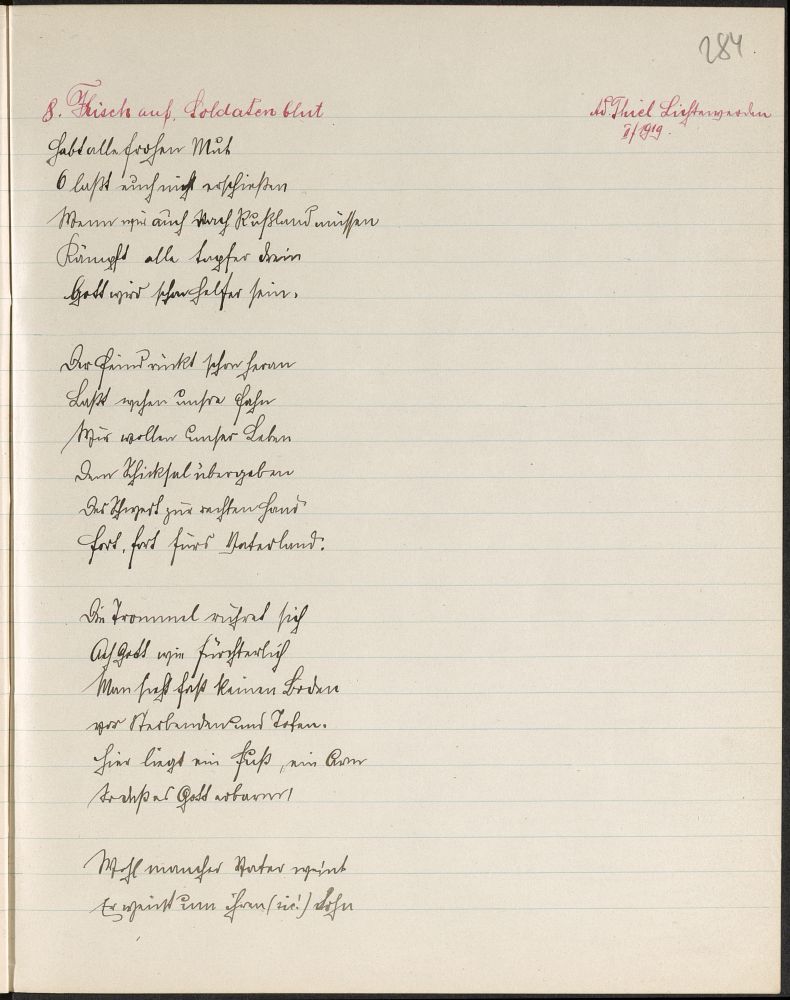 284
8. Frisch auf, Soldatenblut
Ad. Thiel Lichtewerden
II/1919.
Habt alle frohen Mut
O laßt euch nicht erschießen
Wenn wir auch nach Rußland müssen
Kämpft alle tapfer drein
Gott wird schon Helfer sein.
Der Feind rückt schon heran
Laßt wehen unsre Fahn
Wir wollen unser Leben
Dem Schicksal übergeben
Das Schwert zur rechten Hand
Fort, fort fürs Vaterland.
Die Trommel rühret sich
Ach Gott wie fürchterlich
Man sieht fast keinen Boden
vor Sterbenden und Toten.
Hier liegt ein Fuß, ein Arm
So daß es Gott erbarm!
Wohl mancher Vater weint
Er weint um ihren (sic!) Sohn